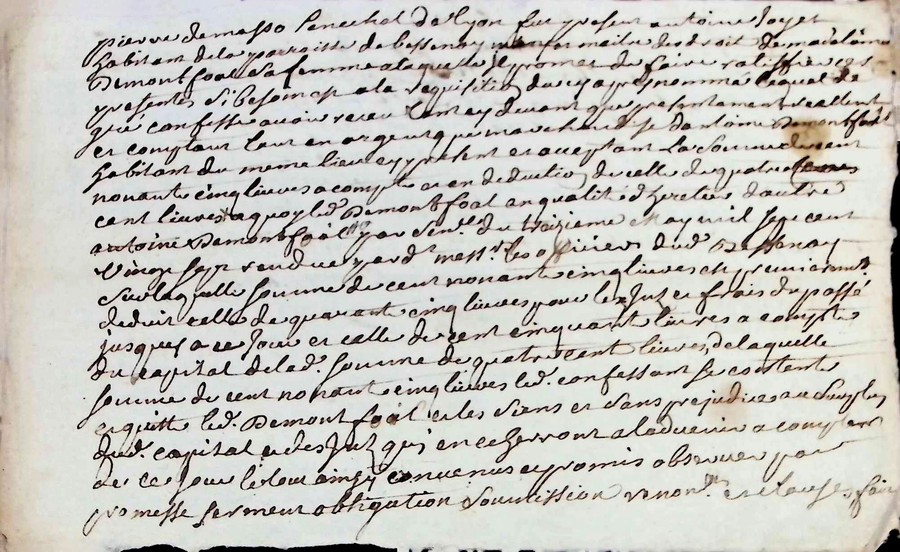 pierre demasso Senechal de lyon fut present antoine Joyet
habitant de la parroisse de bessenay maitre des droit de madelaine
Demontfoal sa femme a laquelle Il promet de faire ratiffier ces
presentes Si besoin est a la requisition du cy apres nomme lequel de
gré confesse avoir receu tant cy devant que presentement reallem.t
et comptant tant en argent que marchandise d'antoine Demontfoal
habitant du meme lieu cy present et acceptant La Somme de cent
nonante cinq livres a compte et en deduction de celle de quatre
cent livres a quoy led. Demontfoal en qualité d'heretier d'autre
antoine Demontfoal par Sen.ce du treizieme May mil Sept cent
vingt Sept rendue par d.t mess.rs les officiers dud. Bessenay
Sur laquelle Somme de cent nonant cinq livres et premierem.t
deduit celle de quarant cinq livres pour les Jnt et frais du passé
jusques a ce Jour et celle de cent cinquant livres a compte
du capital de lad. Somme de quatre cent livres, de laquelle
Somme de cent nonant cinq livres led. confessant se contente
et quitte led. Demontfoal et les Siens et Sans prejudice au Surplus
dud. capital et des Jnt qui en echerront a l'advenir a compter
de ce Jour le tout ainsy convenu et promis observer par
promesse Serment obligation Soumission renon.on et clauses, fait